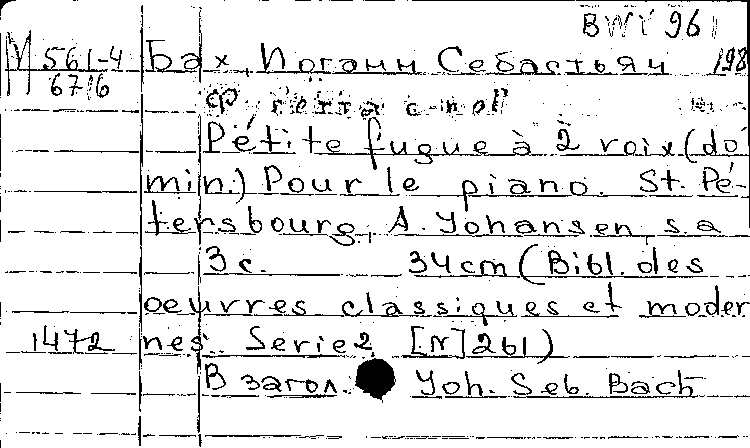 BWV 961
М 561-4 Бах, Иоганн Себастьян 198
6716
c-moll
Petite fugue à 2 voix (do
min.) Pour le piano. St. Pé-
tersbourg, A. Yohansen, s.a
3 с. 34 cm (Bibl. des
oeuvres classiques et moder
1472 nes. Serie 2 [N] 261)
В загол. Yoh. Seb. Bach